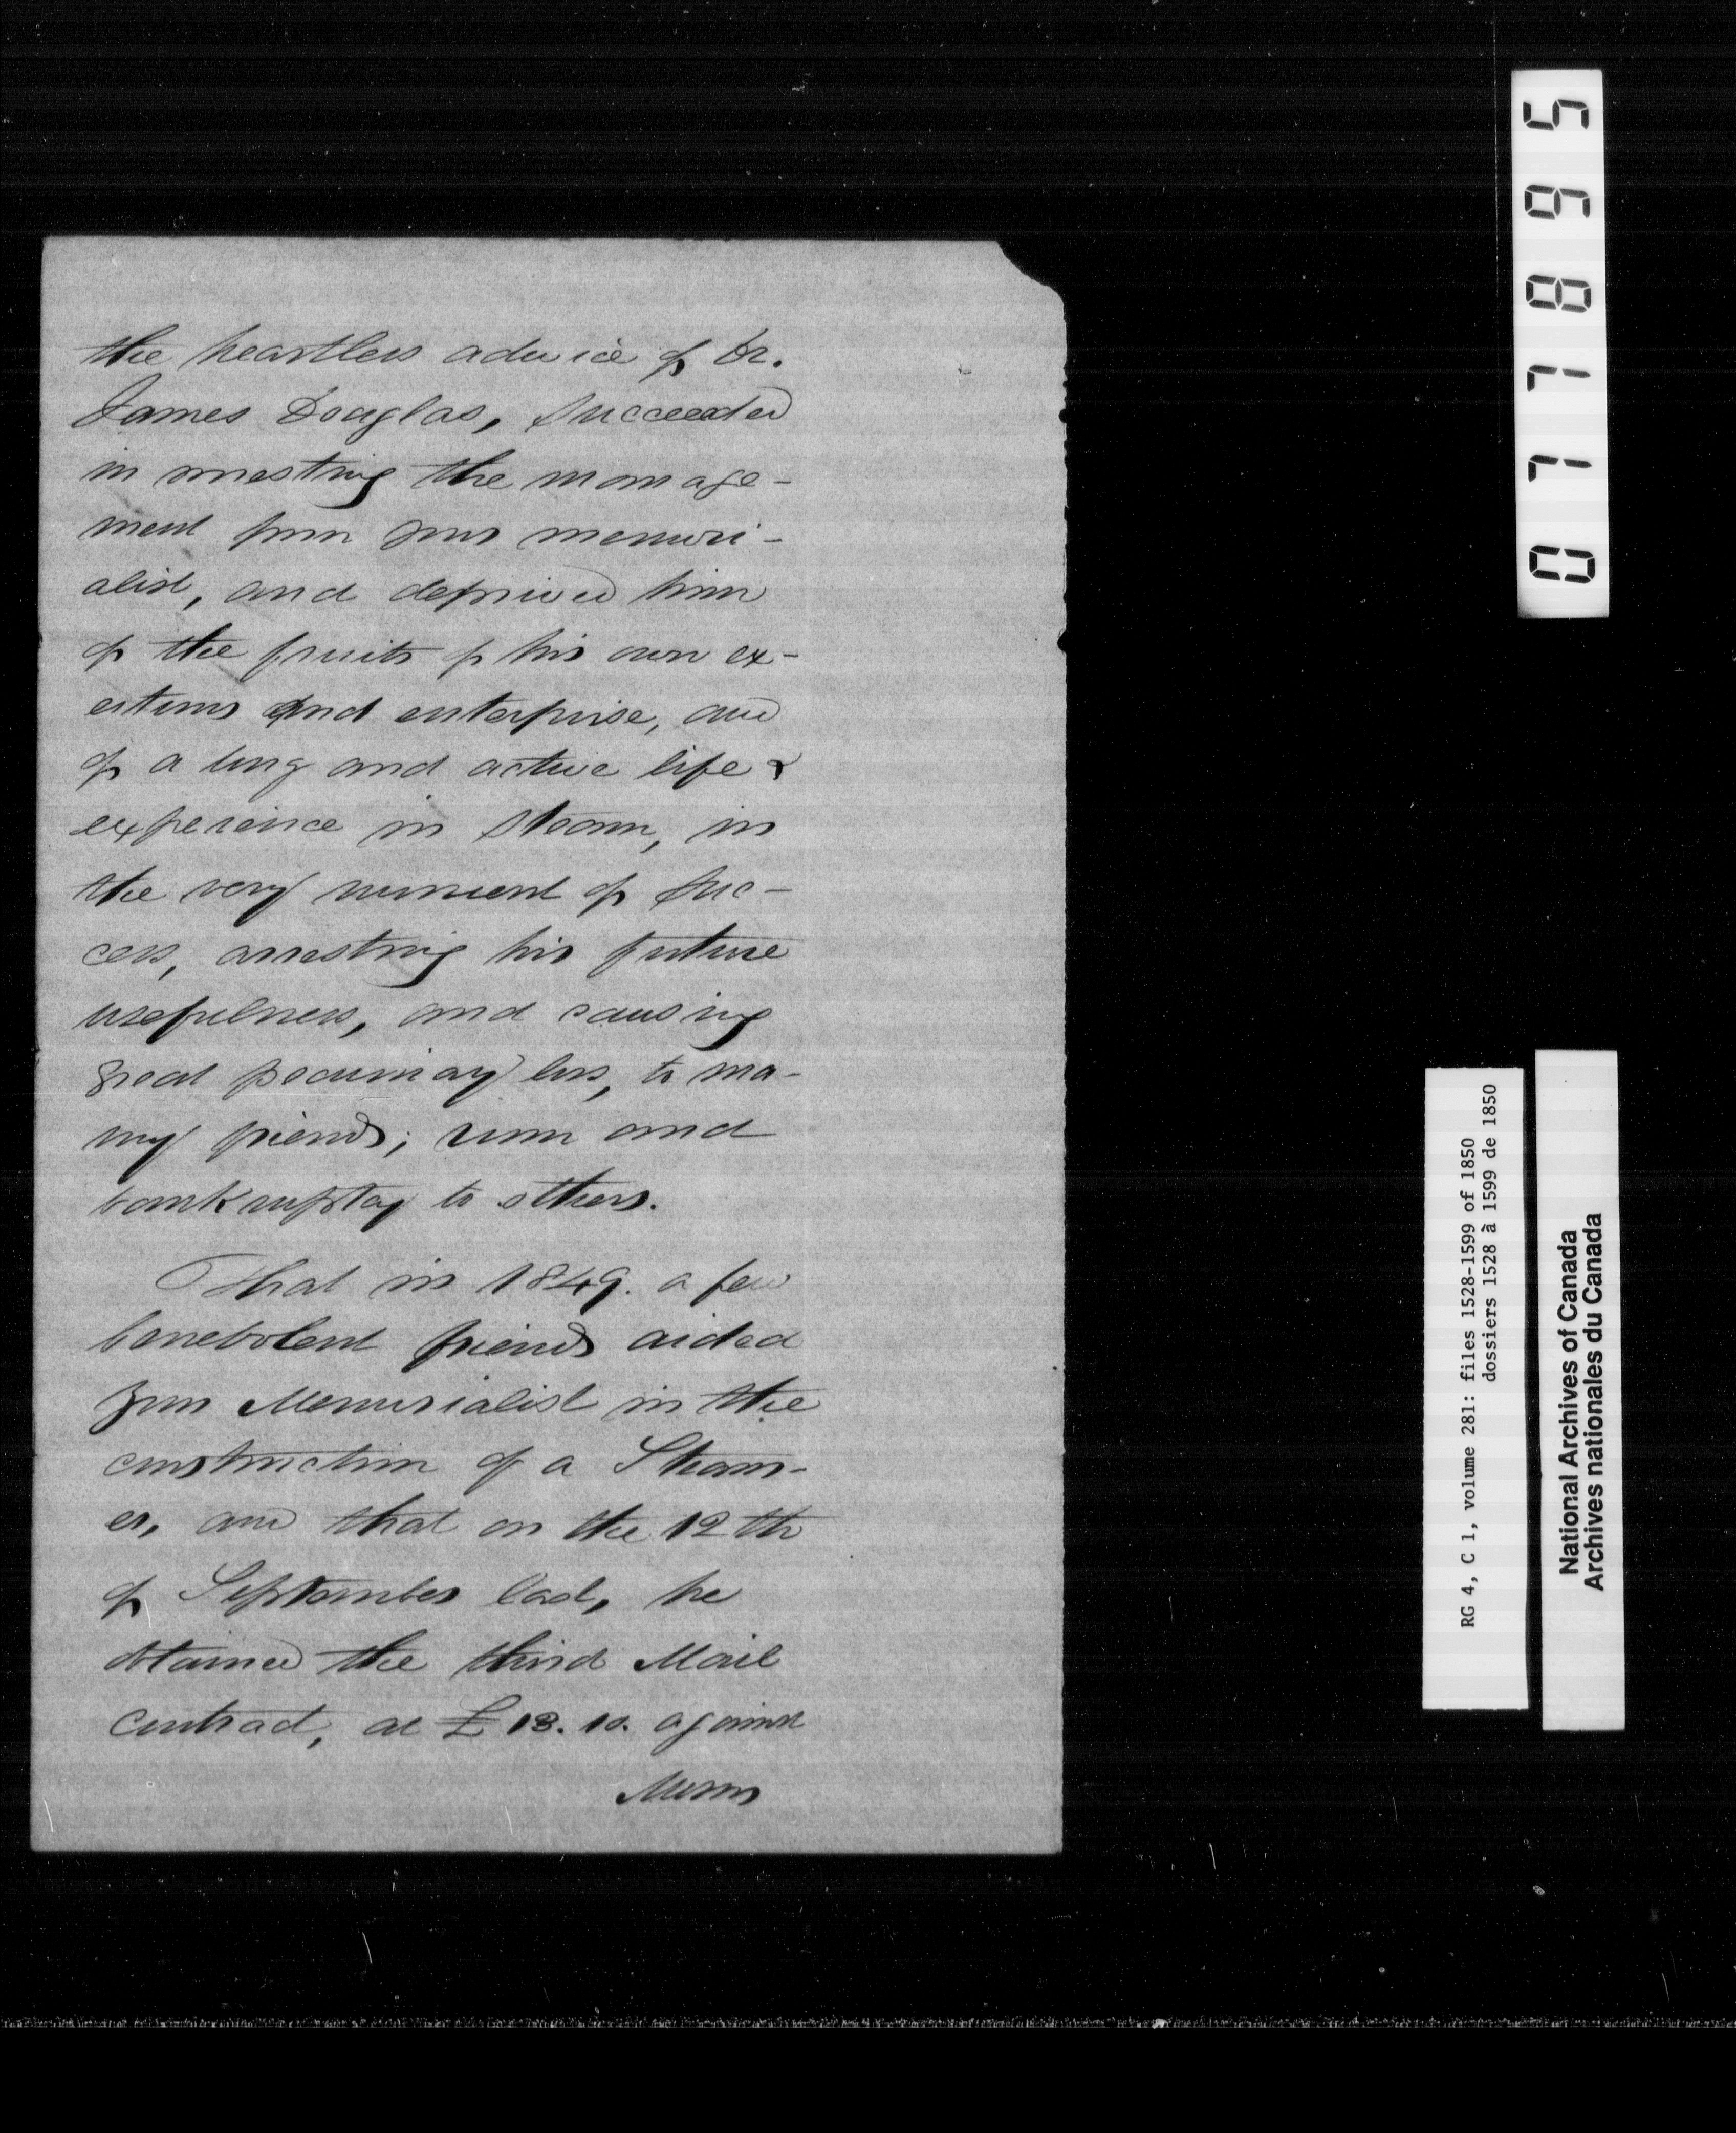 the heartless advice of Dr.
James Douglas, succeeded
in wresting the manage-
ment from your memori-
alist, and deprived him
of the fruits of his own ex-
ertions and enterprise, and
of a long and active life &
experience in steam, in
the very moment of suc-
cess, arresting his future
usefulness, and causing
great pecuniary loss, to ma-
ny friends; ruin and
bankruptcy to others.
That in 1849. a few
benevolent friends aided
your Memorialist in the
construction of a Steam-
er, and that on the 12th
of September last, he
obtained the third Mail
contract, at £13.10. against
Messrs
077895
RG 4, C 1, volume 281: files 1528-1599 of 1850
dossiers 1528 à 1599 de 1850
National Archives of Canada
Archives nationales du Canada